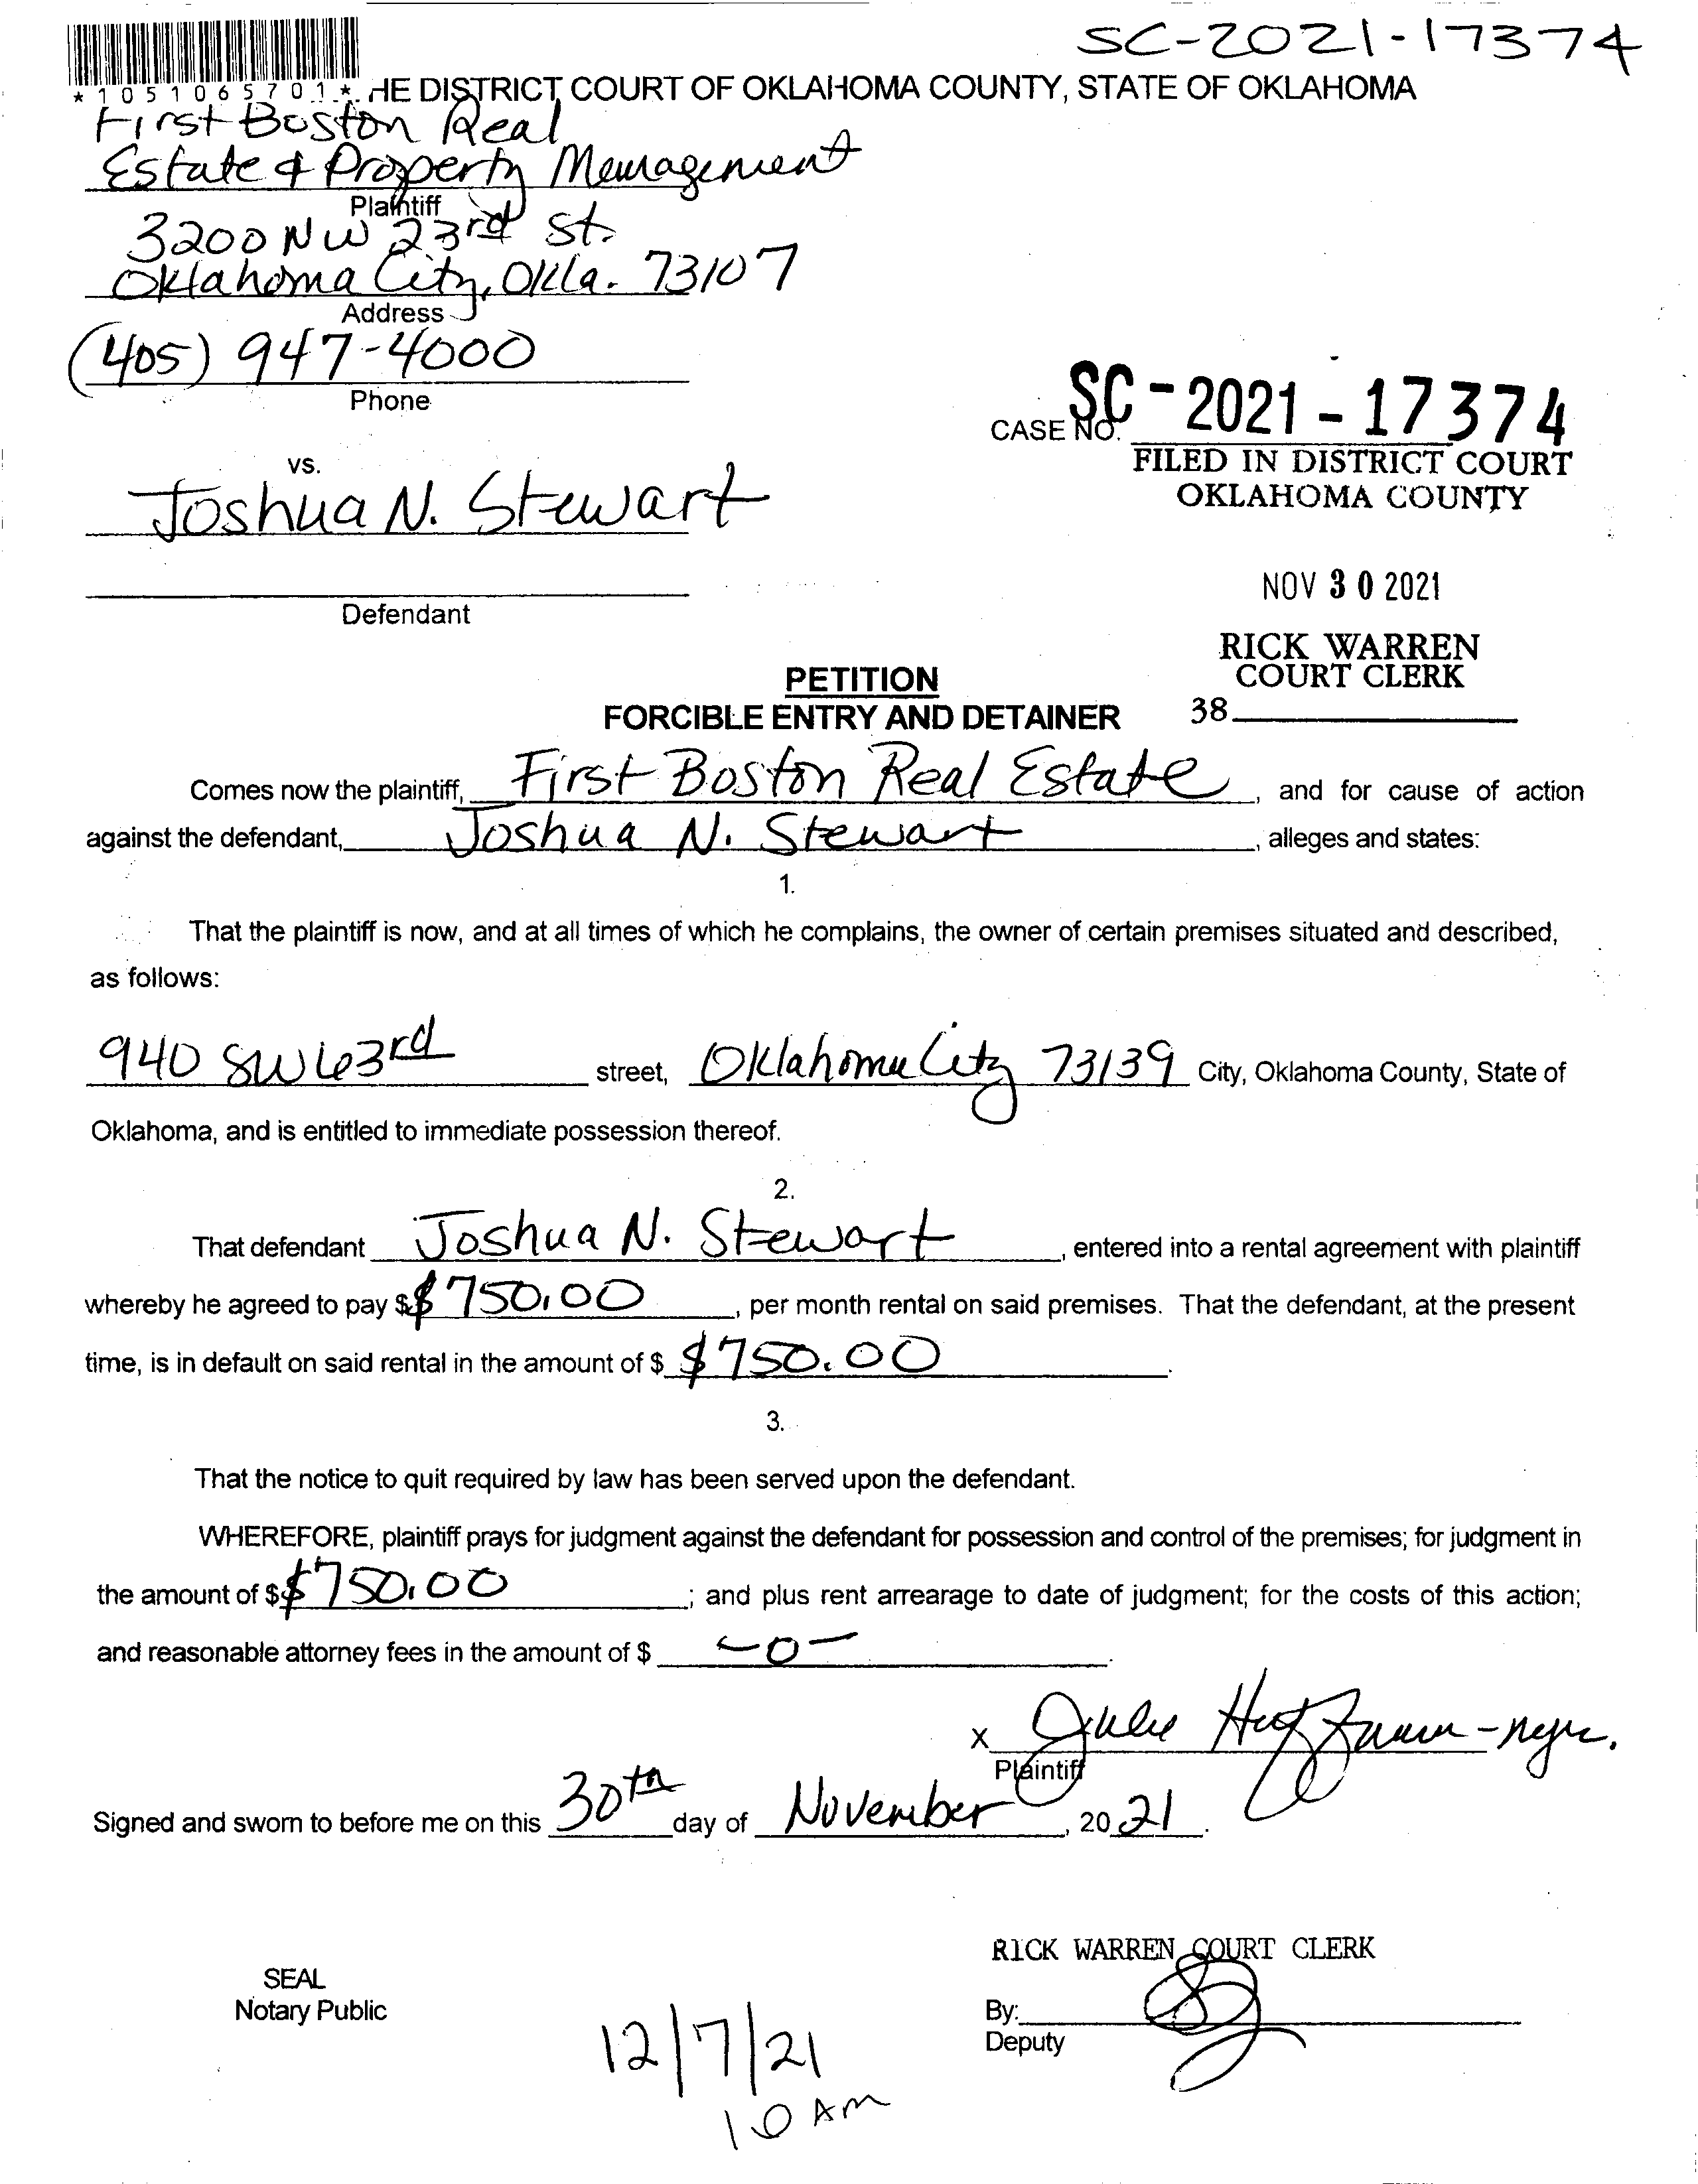 SC-2021-17374
*1051065701* HE DISTRICT COURT OF OKLAHOMA COUNTY, STATE OF OKLAHOMA
First Boston Real
Estate & Property Management
Plaintiff
3200 NW 23rd St.
Oklahoma City, Okla. 73107
Address
(405) 947-4000
Phone
CASE NO. SC-2021-17374
FILED IN DISTRICT COURT
OKLAHOMA COUNTY
vs.
Joshua N. Stewart
NOV 30 2021
Defendant
RICK WARREN
COURT CLERK
38
PETITION
FORCIBLE ENTRY AND DETAINER
Comes now the plaintiff, First Boston Real Estate, and for cause of action
against the defendant, Joshua N. Stewart, alleges and states:
1.
That the plaintiff is now, and at all times of which he complains, the owner of certain premises situated and described,
as follows:
940 SW 63rd street, Oklahoma City 73139 City, Oklahoma County, State of
Oklahoma, and is entitled to immediate possession thereof.
2.
That defendant Joshua N. Stewart, entered into a rental agreement with plaintiff
whereby he agreed to pay $$750.00, per month rental on said premises. That the defendant, at the present
time, is in default on said rental in the amount of $ $750.00.
3.
That the notice to quit required by law has been served upon the defendant.
WHEREFORE, plaintiff prays for judgment against the defendant for possession and control of the premises; for judgment in
the amount of $$750.00; and plus rent arrearage to date of judgment; for the costs of this action;
and reasonable attorney fees in the amount of $ -0-.
X Julie
Plaintiff
Signed and sworn to before me on this 30th day of November, 2021.
RICK WARREN COURT CLERK
SEAL
Notary Public
By:
Deputy
12/7/21
10 AM